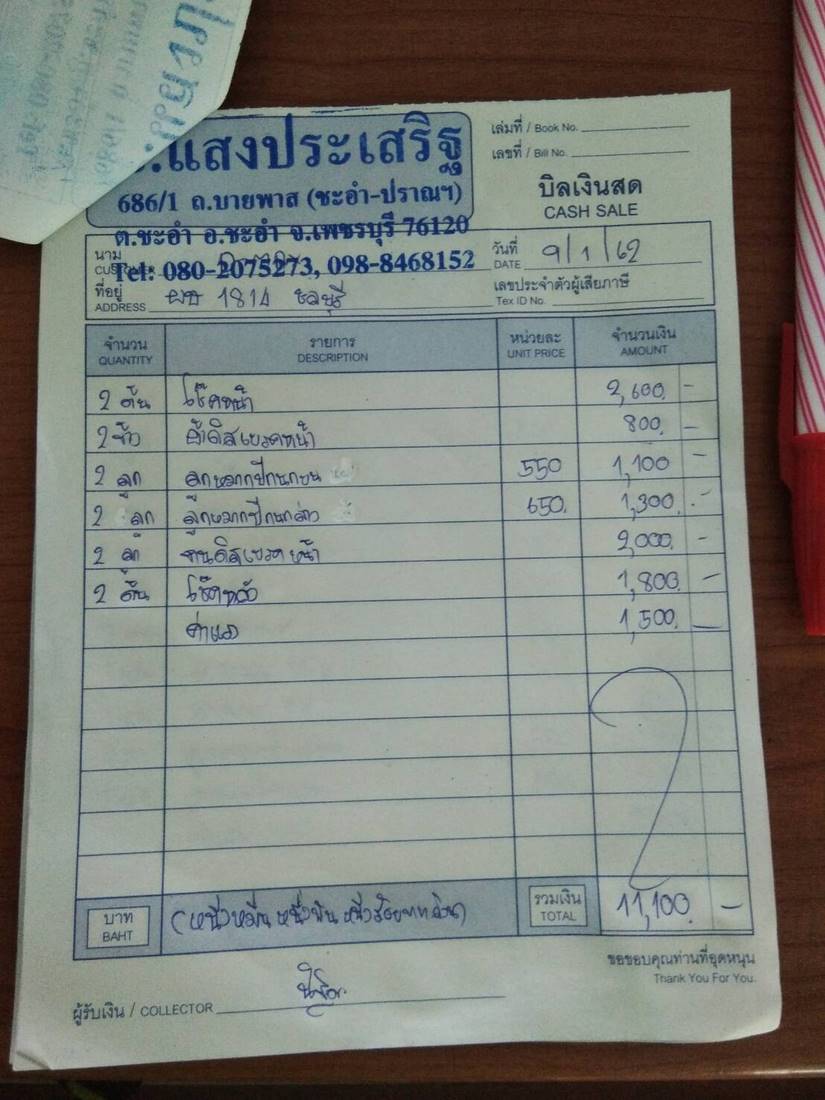 .แสงประเสริฐ
เล่มที่ / Book No.
เลขที่ / Bill No.
686/1 ถ.บายพาส (ชะอำ-ปราณฯ)
บิลเงินสด
CASH SALE
ต.ชะอำ อ.ชะอำ จ.เพชรบุรี 76120
นาม
วันที่ 9/1/62
DATE
Tel: 080-2075273, 098-8468152
ที่อยู่ ผบ 1814 ชลบุรี
ADDRESS
เลขประจำตัวผู้เสียภาษี
Tex ID No.
จำนวน รายการ หน่วยละ จำนวนเงิน
QUANTITY DESCRIPTION UNIT PRICE AMOUNT
2 ต้น โช๊คหน้า 2,600 -
2 ข้าง ผ้าดิสเบรคหน้า 800. -
2 ลูก ลูกหมากปีกนกบน 550 1,100 -
2 ลูก ลูกหมากปีกนกล่าง 650. 1,300. -
2 ลูก จานดิสเบรคหน้า 2,000. -
2 ต้น โช๊คหลัง 1,800. -
ค่าแรง 1,500. -
บาท (หนึ่งหมื่นหนึ่งพันหนึ่งร้อยบาทถ้วน) รวมเงิน 11,100. -
BAHT TOTAL
ขอขอบคุณท่านที่อุดหนุน
Thank You For You.
ผู้รับเงิน / COLLECTOR